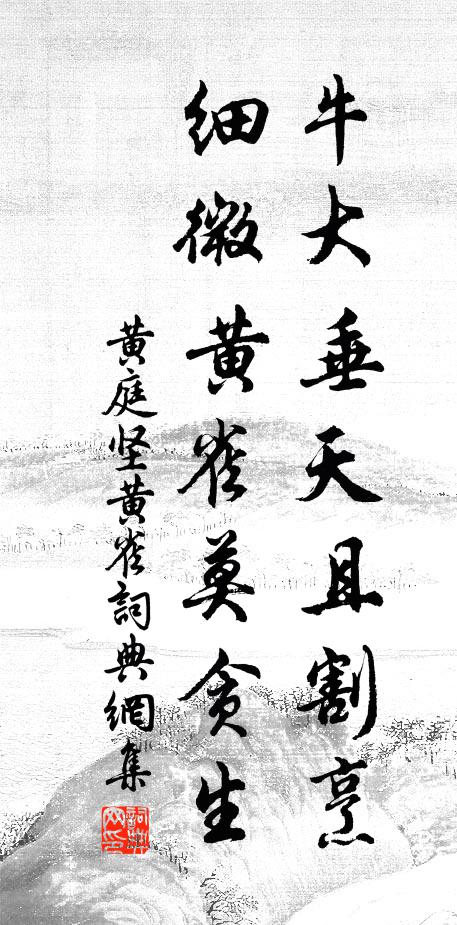 牛大垂天且割烹
细微黄雀莫贪生
黄庭坚黄雀詞典網集